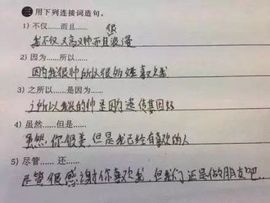 三 用下列连接词造句。
1) 不仅……而且……
很
我不仅又高又帅而且浪漫
2) 因为……所以……
因为我很帅所以很多妹喜欢我
3) 之所以……是因为……
之所以我很帅是因为遗传基因好
4) 虽然……但是……
虽然你很美但是我已经有喜欢的人
5) 尽管…… 还……
尽管很感谢你喜欢我 但我们还是做朋友吧